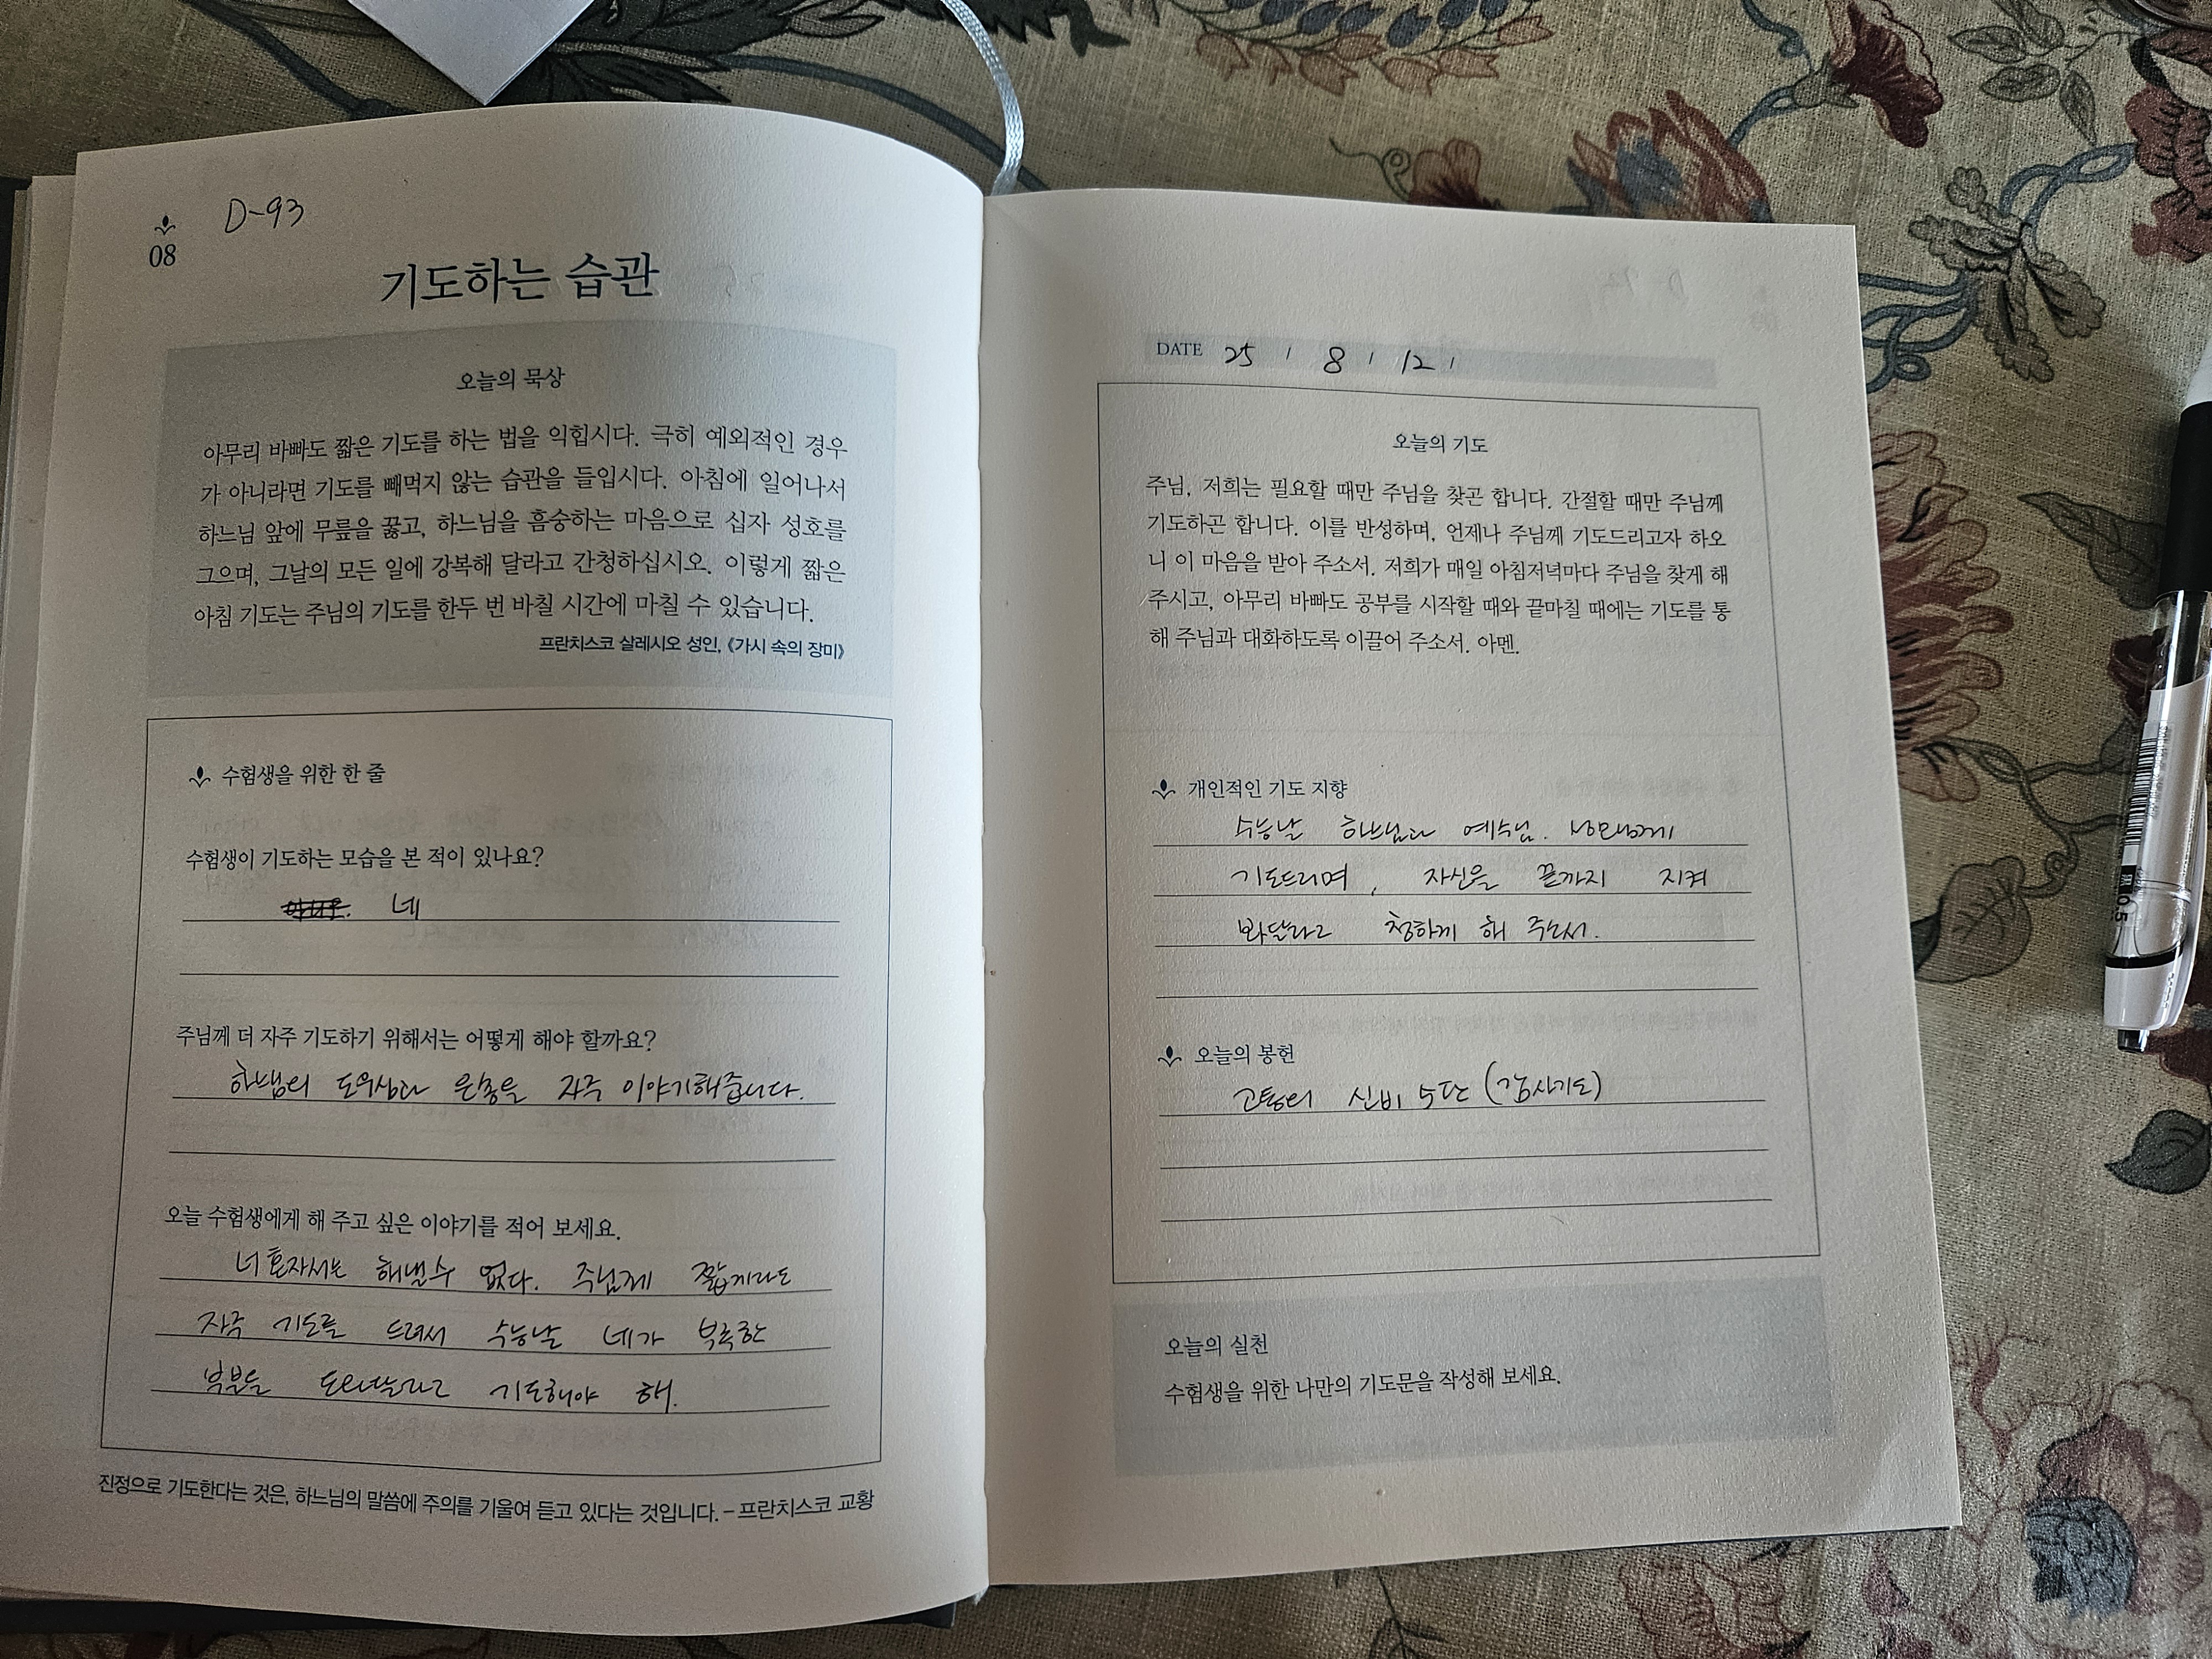 08
D-93
기도하는 습관
오늘의 묵상
아무리 바빠도 짧은 기도를 하는 법을 익힙시다. 극히 예외적인 경우
가 아니라면 기도를 빼먹지 않는 습관을 들입시다. 아침에 일어나서
하느님 앞에 무릎을 꿇고, 하느님을 흠숭하는 마음으로 십자 성호를
그으며, 그날의 모든 일에 강복해 달라고 간청하십시오. 이렇게 짧은
아침 기도는 주님의 기도를 한두 번 바칠 시간에 마칠 수 있습니다.
프란치스코 살레시오 성인, 《가시 속의 장미》
수험생을 위한 한 줄
수험생이 기도하는 모습을 본 적이 있나요?
네
주님께 더 자주 기도하기 위해서는 어떻게 해야 할까요?
하느님의 도우심과 은총을 자주 이야기해줍니다.
오늘 수험생에게 해 주고 싶은 이야기를 적어 보세요.
너 혼자서는 해낼수 없다. 주님께 짧게라도
자주 기도를 드려서 수능날 네가 부족한
부분을 도와달라고 기도해야 해.
진정으로 기도한다는 것은, 하느님의 말씀에 주의를 기울여 듣고 있다는 것입니다. – 프란치스코 교황
DATE 25 / 8 / 12 /
오늘의 기도
주님, 저희는 필요할 때만 주님을 찾곤 합니다. 간절할 때만 주님께
기도하곤 합니다. 이를 반성하며, 언제나 주님께 기도드리고자 하오
니 이 마음을 받아 주소서. 저희가 매일 아침저녁마다 주님을 찾게 해
주시고, 아무리 바빠도 공부를 시작할 때와 끝마칠 때에는 기도를 통
해 주님과 대화하도록 이끌어 주소서. 아멘.
개인적인 기도 지향
수능날 하느님과 예수님. 성모님께
기도드리며, 자신을 끝까지 지켜
봐달라고 청하게 해 주소서.
오늘의 봉헌
고통의 신비 5단 (감사기도)
오늘의 실천
수험생을 위한 나만의 기도문을 작성해 보세요.